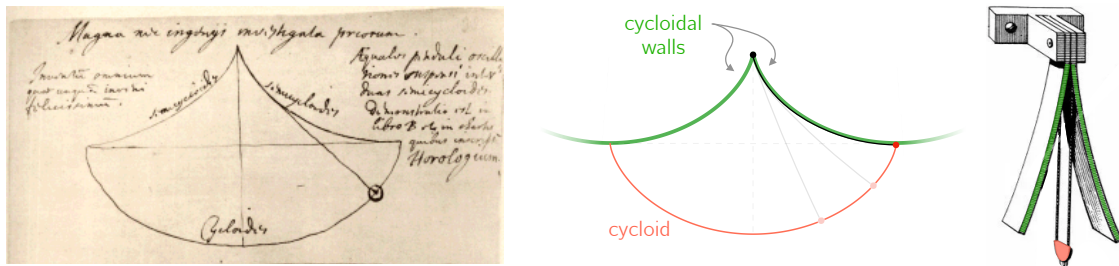 Magna nec ingenijs investigata priorum.
Inventum omnium
felicissimum.
semicycloides
semicycloides
Æquales penduli oscilla
tiones suspensi inter
duas semicycloides
demonstratio est in
libro B et in charta
quibus inscript.
Horologium.
Cycloides
cycloidal
walls
cycloid